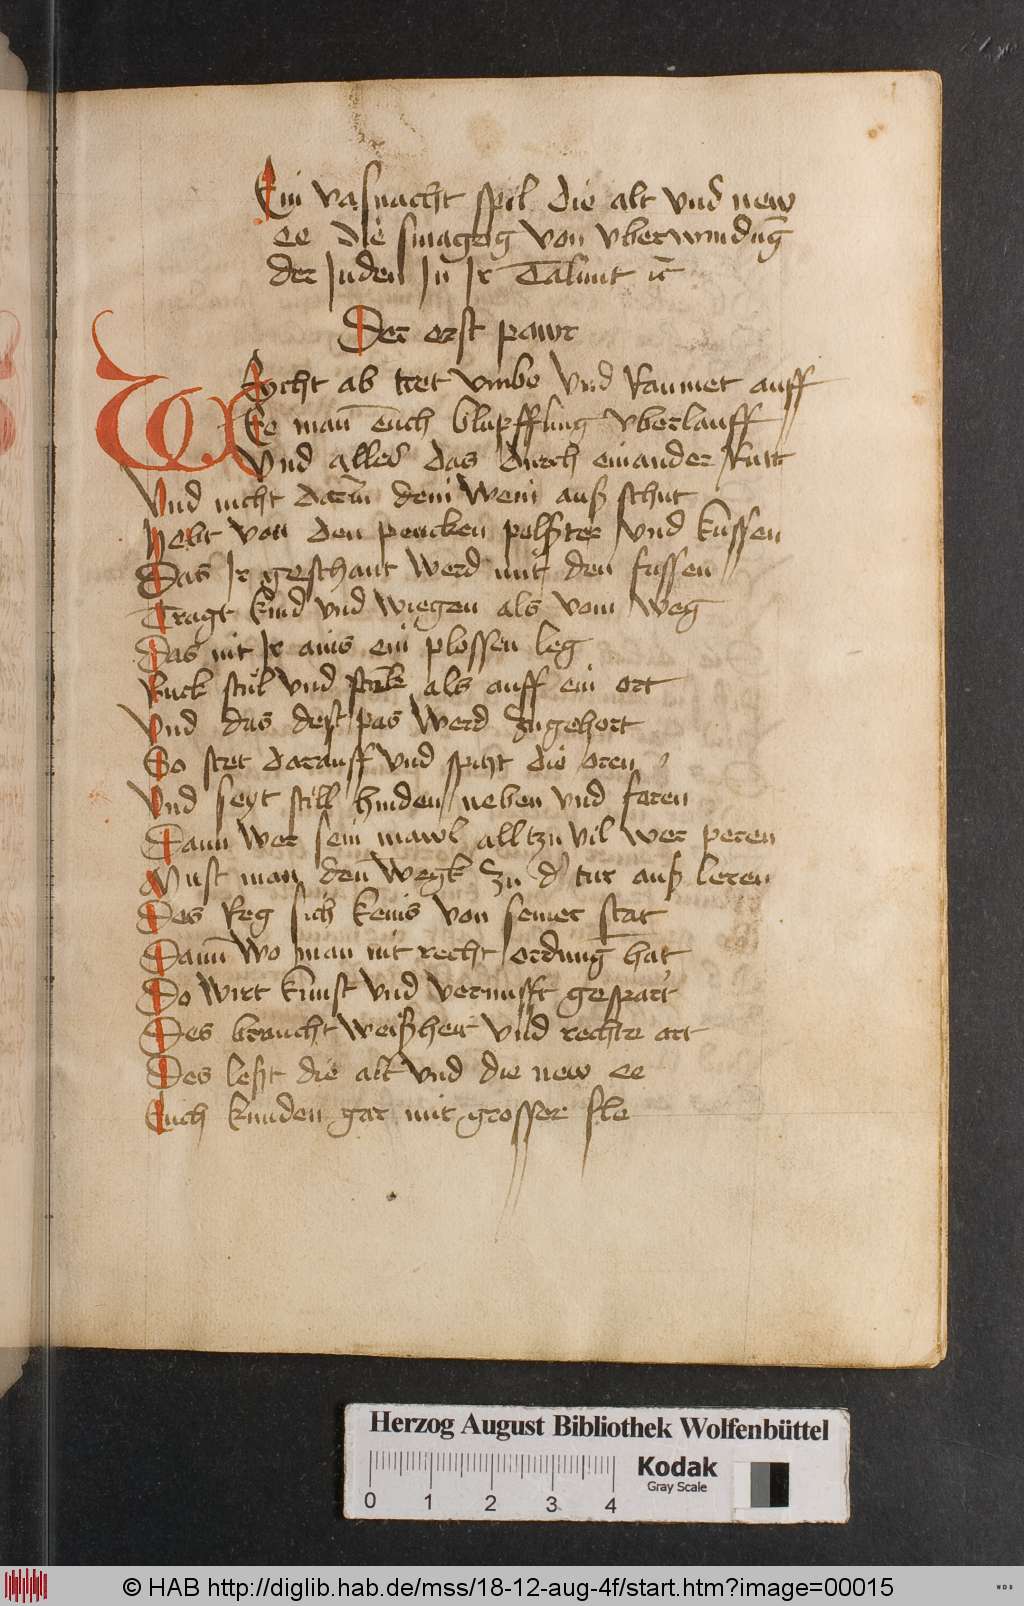 Ein vasnacht spil die alt vnd new
ee die sinagog von vberwindūg
der Juden Jn Jr Talmut ꝛc̄
Der erst pawr
Weycht ab tret vmbe vnd Raumet auff
Ee man euch blupffling vberlauff
Vnd alles das durch einander Rutt
Vnd nicht darūm dem Wein auß schut
Hebt von den pencken polster vnd kussen
Das Jr geschant werd mit den fussen
Tragt kind vnd wiegen als vom weg
Das nit Jr ains ein plossen leg
Ruck stul vnd penk als auff ein ort
Vnd das dest pas werd zugehort
So stet darauff vnd spitzt die oren
Vnd seyt still hinden neben vnd foren
Dann wer sein mawl alltzu vil wer peren
Must man den wegk zu d' tur auß leren
Des Reg sich keins von seiner stat
Dann wo man nit recht ordnung hat
Do wirt kunst vnd vernufft gespart
Des braucht weißheit vnd rechte art
Des leßt die alt vnd die new ee
Euch kunden gar mit grosser fle
Herzog August Bibliothek Wolfenbüttel
0 1 2 3 4
Kodak
Gray Scale
© HAB http://diglib.hab.de/mss/18-12-aug-4f/start.htm?image=00015